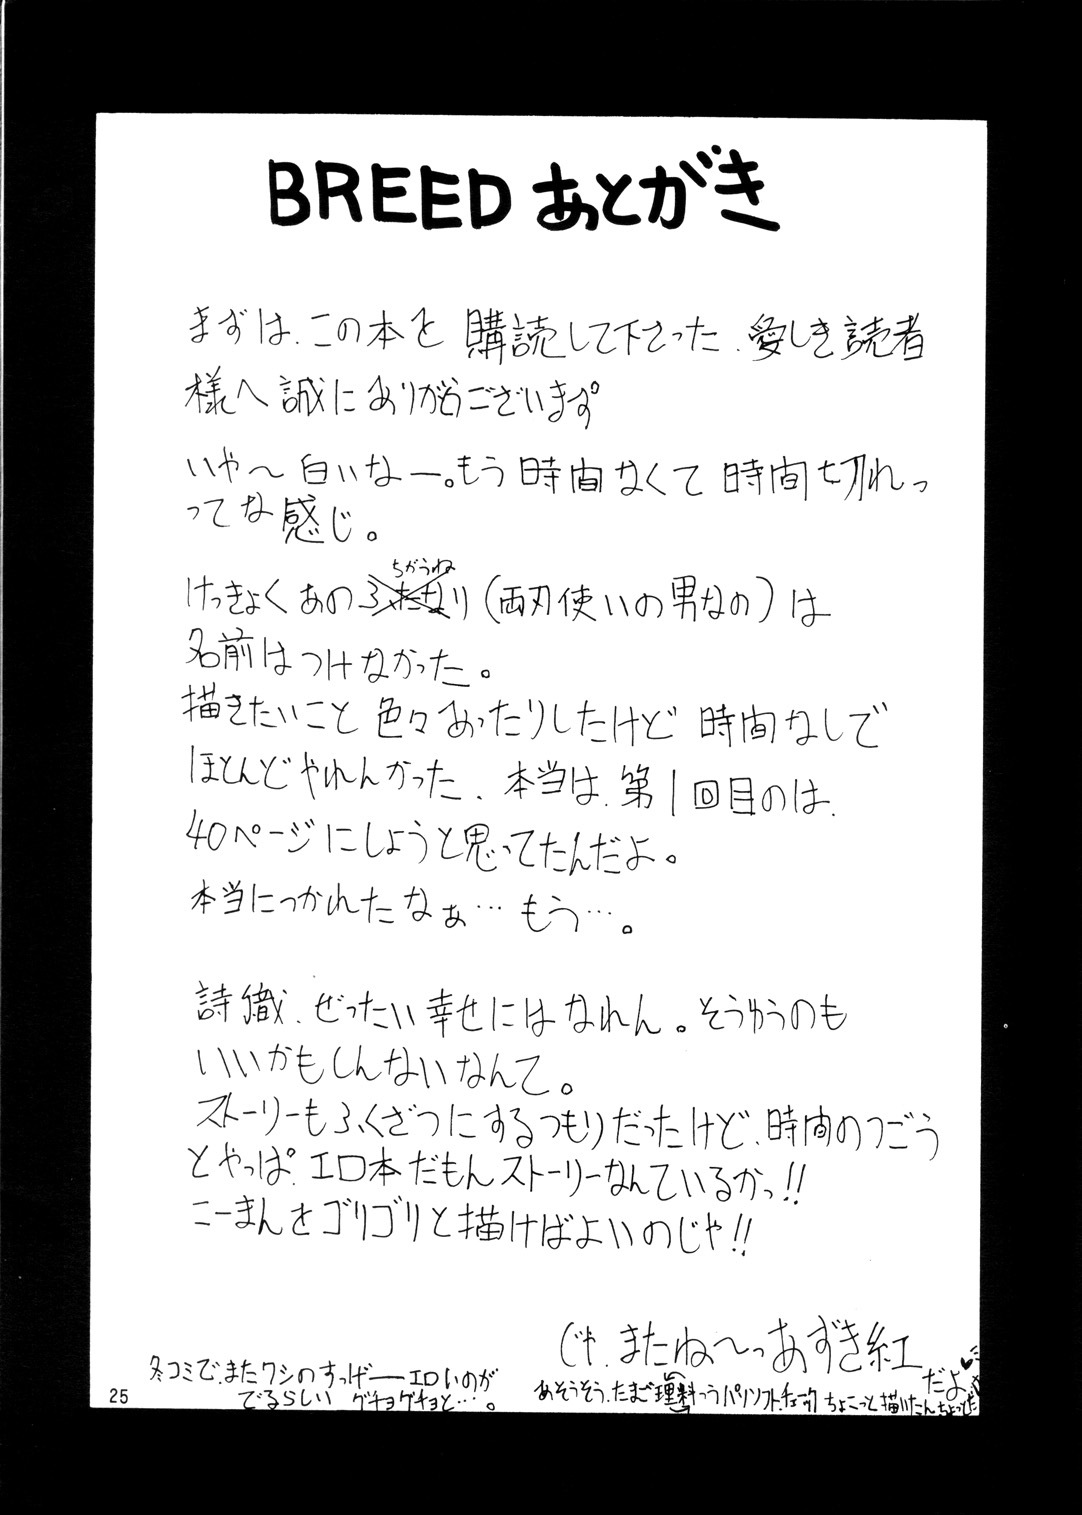 BREED あとがき
まずは、この本を購読して下さった、愛しき読者
様へ誠にありがとうございます。
いや〜白いなー。もう時間なくて時間切れっ
ってな感じ。
ちがうね
けっきょくあのふたなり(両刃使いの男なの)は
名前はつけなかった。
描きたいこと色々あったりしたけど時間なしで
ほとんどやれんかった、本当は、第1回目のは、
40ページにしようと思ってたんだよ。
本当につかれたなぁ…もう…。
詩織、ぜったい幸せにはなれん。そうゆうのも
いいかもしんないなんて。
ストーリーもふくざつにするつもりだったけど、時間のつごう
とやっぱ、エロ本だもんストーリーなんているかっ!!
こーまんをゴリゴリと描けばよいのじゃ!!
じゃ、またね〜っあずき紅
だよ
冬コミで、またワシのすっげーエロいのが
でるらしい グチョグチョと…。
あそうそう、たまご理料っつうパソソフト、チェック ちょこっと描いたん
25